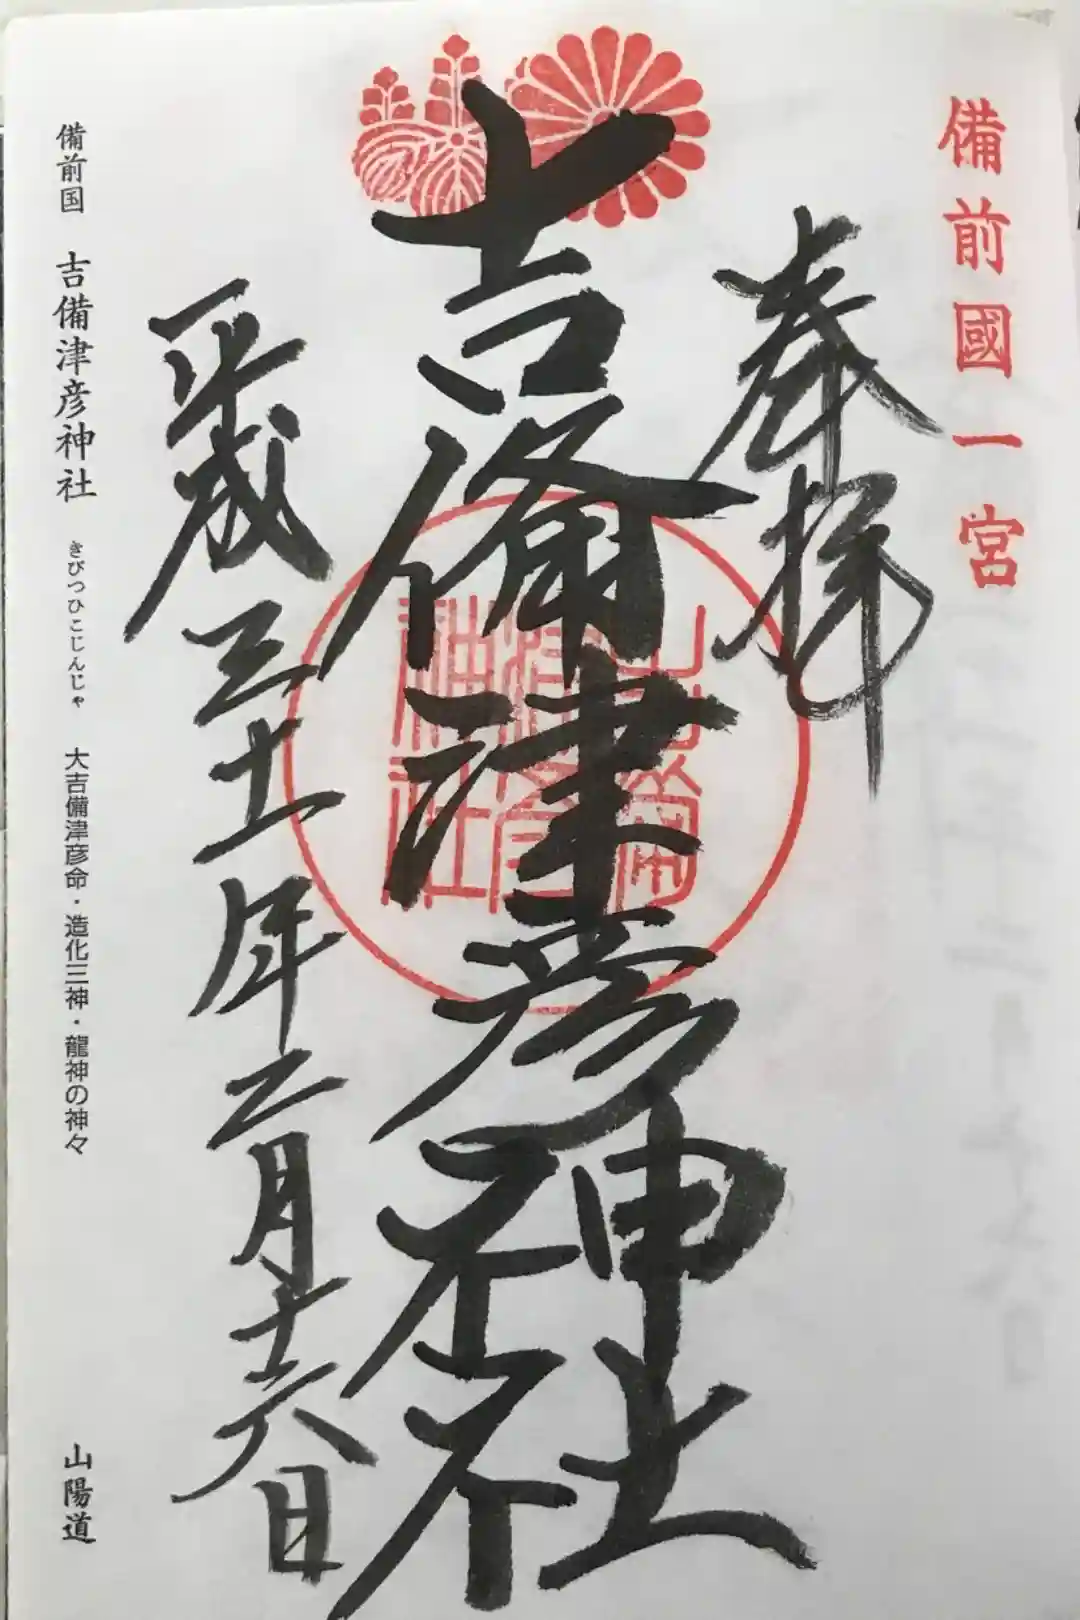 備前國一宮
奉拝
吉備津彦神社
平成三十一年二月十六日
備前国 吉備津彦神社 きびつひこじんじゃ 大吉備津彦命・造化三神・龍神の神々 山陽道
吉備
津彦
神社